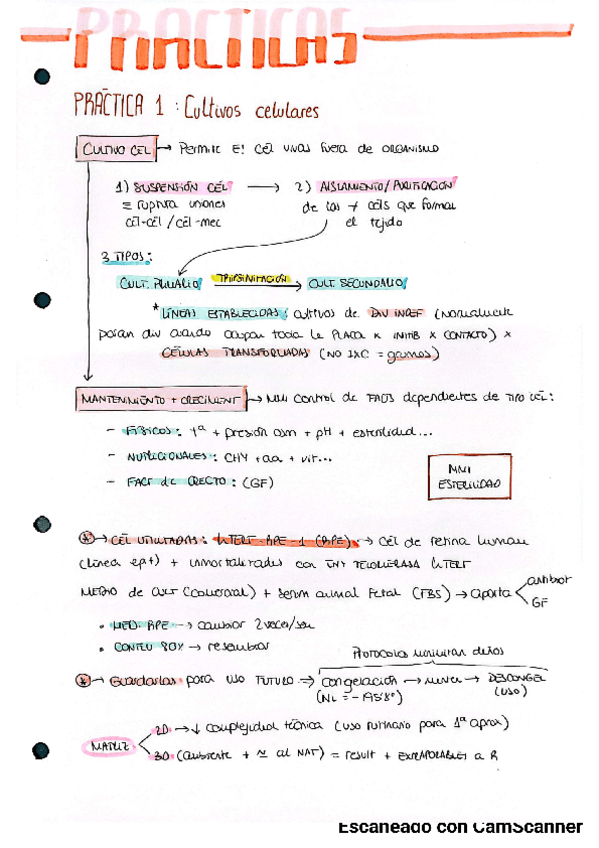 PRACTICAS
PRÁCTICA 1 : Cultivos celulares
CULTIVO CEL → Permite E! cél vivas fuera de ORGANISMO
1) SUSPENSIÓN CÉL → 2) AISLAMIENTO/PURIFICACIÓN
= ruptura uniones de las ≠ céls que forman
cél-cél / cél-mec el tejido
3 TIPOS:
CULT. PRIMARIO TRIPSINIZACIÓN CULT SECUNDARIO
* LÍNEAS ESTABLECIDAS: cultivos de DIV INDEF (Normalmente
paran div cuando ocupan toda la PLACA x INHIB x CONTACTO) x
CÉLULAS TRANSFORMADAS (NO IXC = grumos)
MANTENIMIENTO + CRECIMIENT → MMI control de FACTS dependientes de TIPO CÉL:
- FÍSICOS: Tª + presión osm + pH + esterilidad...
- NUTRICIONALES: CHY + aa + vit...
- FACT de CRECTO: (GF)
MMI
ESTERILIDAD
→ CÉL UTILIZADAS: hTERT-RPE-1 (RPE) → cél de retina humana
(línea epit) + inmortalizadas con TELOMERASA hTERT
MEDIO de CULT (comercial) + serum animal Fetal (FBS) → aporta
antibiot
GF
• MED. RPE → cambiar 2 veces/sem
• CONFLU 80% → resembrar
Protocolos minimizan daños
→ Guardarlas para uso FUTURO → congelación → → DESCONGEL
(NL = -195'8º) (USO)
MATRIZ
2D → ↓ complejidad técnica (uso rutinario para 1ª aprox)
3D (ambiente + ≃ al NAT) = result + EXTRAPOLABLES a R
Escaneado con CamScanner